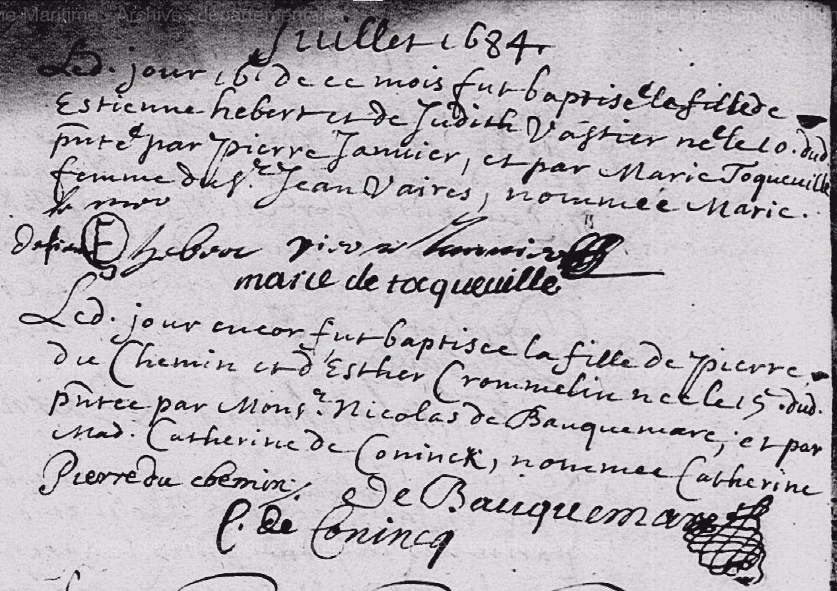 ne-Maritime - Archives départementales
Juillet 1684.
Led. jour 16e de ce mois fut baptisée la fille de
Estienne hebert et de Judith Vastier née le 10. dud
pñtée par Pierre Jannier, et par Marie Toqueville
femme du Sr. Jean Vaires, nommée Marie.
hebert
marie de tocqueuille
Led. jour encor fut baptisee la fille de Pierre
du Chemin et d'Esther Crommelin nee le 15 dud.
pñtee par Monsr. Nicolas de Bauquemare, et par
Mad. Catherine de Coninck, nommee Catherine
Pierre du chemin
de Bauquemare
C. de Conincq